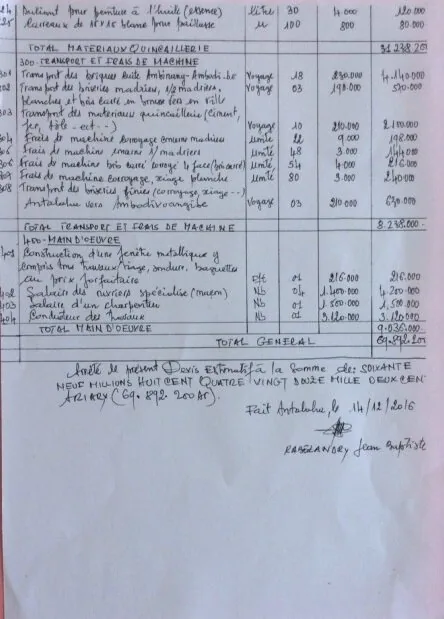 24 Diluant pour peinture à l'huile (essence) litre 30 4.000 120.000
25 Carreaux de 15x15 blanc pour paillasse u 100 800 80.000
TOTAL MATERIAUX QUINCAILLERIE 51.238.20
300-TRANSPORT ET FRAIS DE MACHINE
301 Transport des briques cuite Voyage 18 230.000 4.140.000
302 Transport des boiseries madriers, 1/2 madriers,
planches et bois carré en brousse en ville Voyage 03 190.000 570.000
303 Transport des materiaux quincaillerie (ciment,
fer, tôle - ect --) Voyage 10 210.000 2.100.000
304 Frais de machine corroyage madrier unité 22 9.000 198.000
Frais de machine 1/2 madriers unité 48 3.000 144.000
306 Frais de machine bois carré corroyé 4 face unité 54 4.000 216.000
Frais de machine corroyage, planche unité 80 3.000 240.000
308 Transport des boiseries finies
Antalaha vers Ambodivoangibe Voyage 03 210.000 630.000
TOTAL TRANSPORT ET FRAIS DE MACHINE 8.238.000.-
400-MAIN D'OEUVRE
401 Construction d'une fenêtre metallique y
compris tous travaux baguettes
au prix forfaitaire Fft 01 216.000 216.000
402 Salaire des ouvriers spécialisé (maçon) Nb 1.400.000 4.200.000
403 Salaire d'un charpentier Nb 01 1.500.000 1.500.000
404 Conducteur des travaux Nb 01 3.120.000 3.120.000
TOTAL MAIN D'OEUVRE 9.036.000-
TOTAL GENERAL 69.892.200
Arrêté le présent Devis Estimatif à la somme de: SOIXANTE
NEUF MILLIONS HUIT CENT QUATRE VINGT DOUZE MILLE DEUX CEN
ARIARY (69.892.200 Ar).
Fait Antalaha, le 14/12/2016
Jean Baptiste